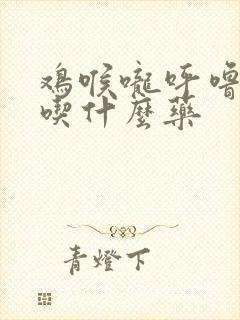 鸡喉咙呼噜
喫什麼藥
青燈下